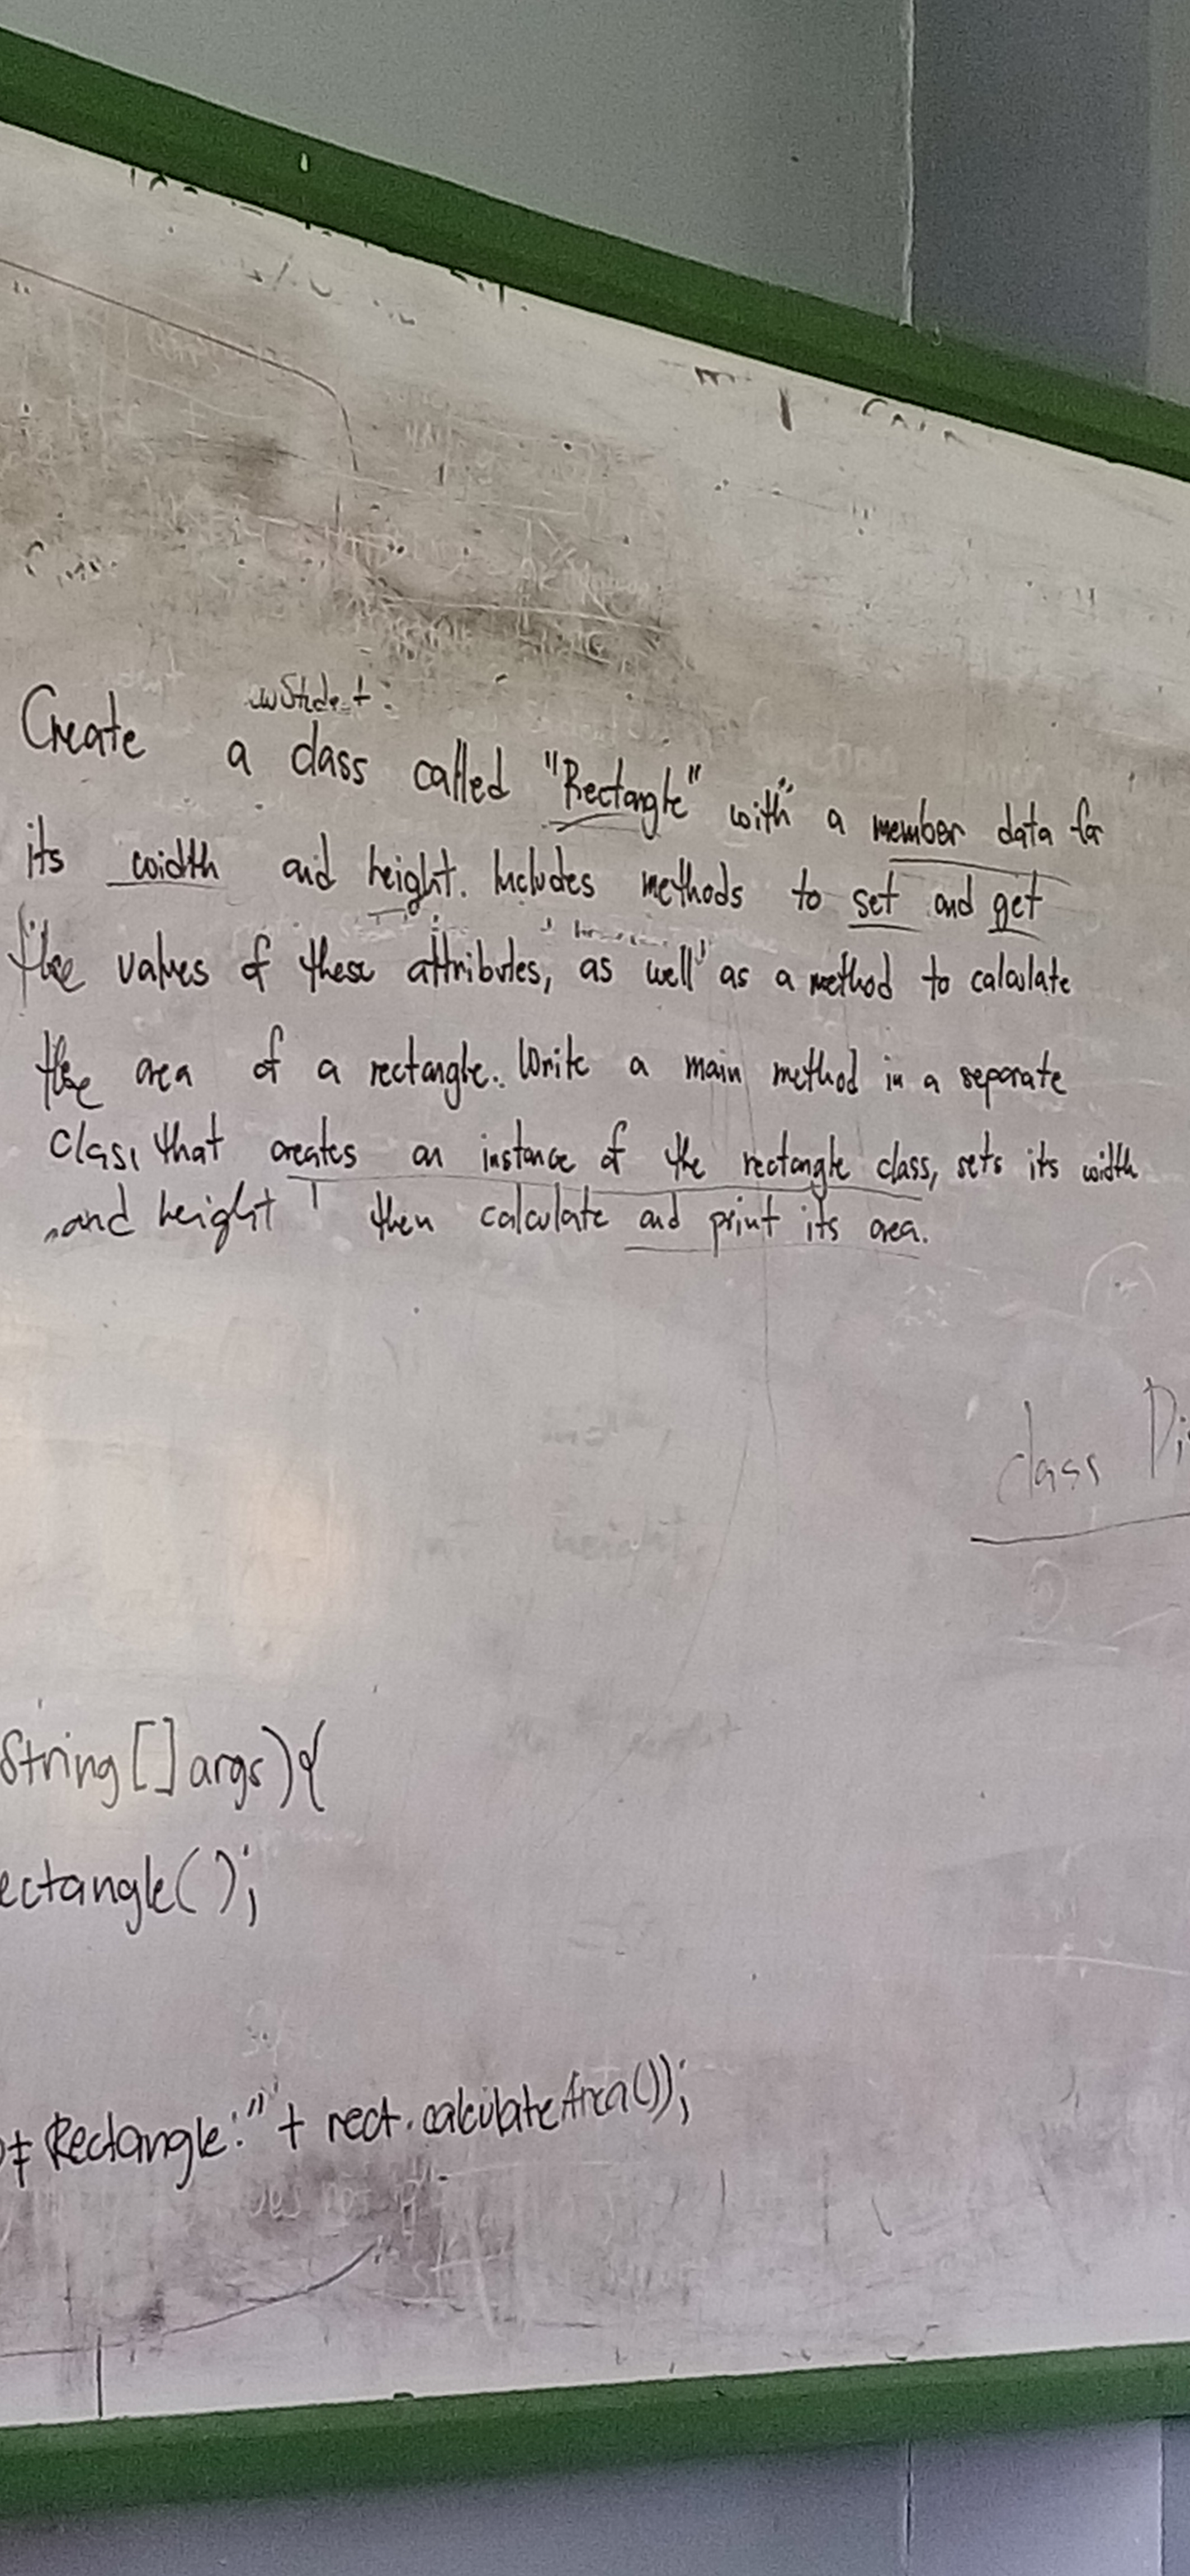 Create a class called "Rectangle" with a member data for
its width and height. Includes methods to set and get
the values of these attributes, as well as a method to calculate
the area of a rectangle. Write a main method in a separate
class that creates an instance of the rectangle class, sets its width
and height then calculate and print its area.
class
height
String[] args){
ectangle();
of Rectangle:" + rect.calculateArea());